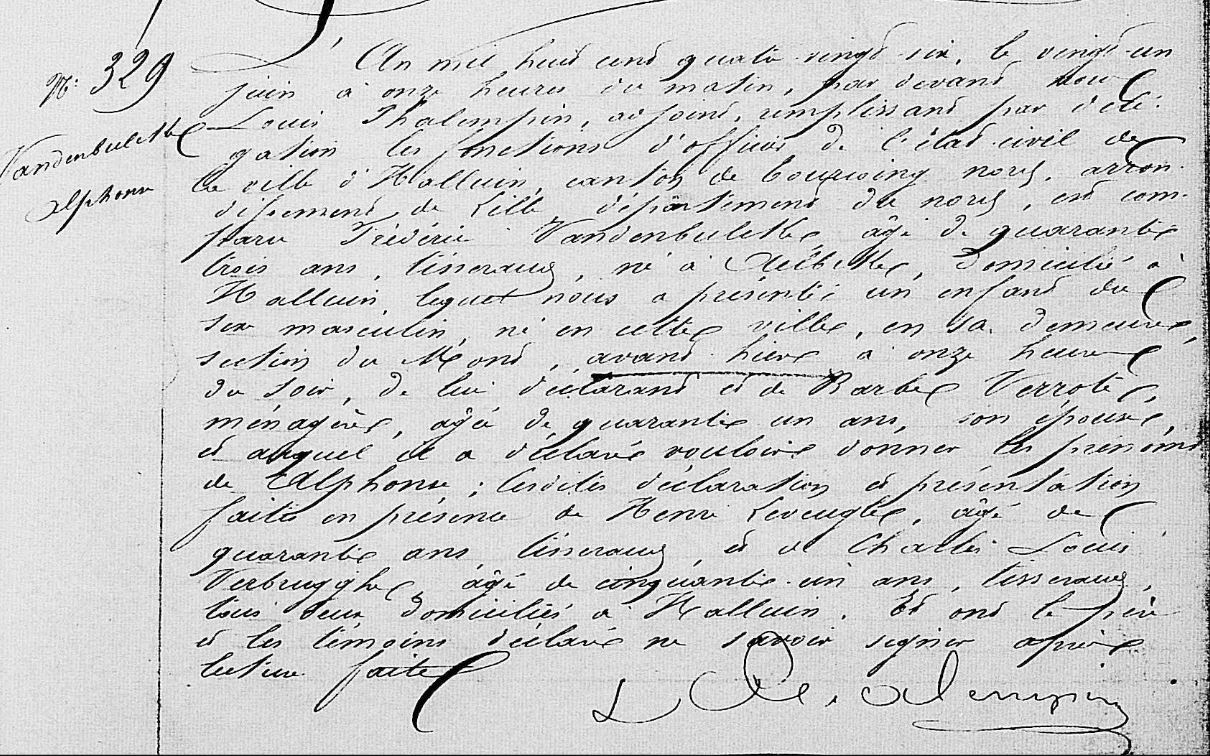 N.° 329
Vandenbulcke
Alphonse
L'An mil huit cent quatre vingt six, le vingt-un
juin à onze heures du matin, par devant nous
Louis Phalempin, adjoint, remplissant par délé-
gation les fonctions d'officier de l'état-civil de
la ville d'Halluin, canton de Tourcoing nord, arron-
dissement de Lille, département du nord, est com-
paru Frédéric Vandenbulcke, âgé de quarante
trois ans, tisserand, né à Aelbeke, domicilié à
Halluin, lequel nous a présenté un enfant du
sexe masculin, né en cette ville, en sa demeure,
section du Mont, avant-hier à onze heures
du soir, de lui déclarant et de Barbe Verrote,
ménagère, âgée de quarante un ans, son épouse,
et auquel il a déclaré vouloir donner les prénoms
de Alphonse ; lesdites déclaration et présentation
faites en présence de Henri Leveugle, âgé de
quarante ans tisserand et de Charles Louis
Verbrugghe âgé de cinquante-un ans, tisserand,
tous deux domiciliés à Halluin. Et ont le père
et les témoins déclaré ne savoir signer après
lecture faite
L Phalempin